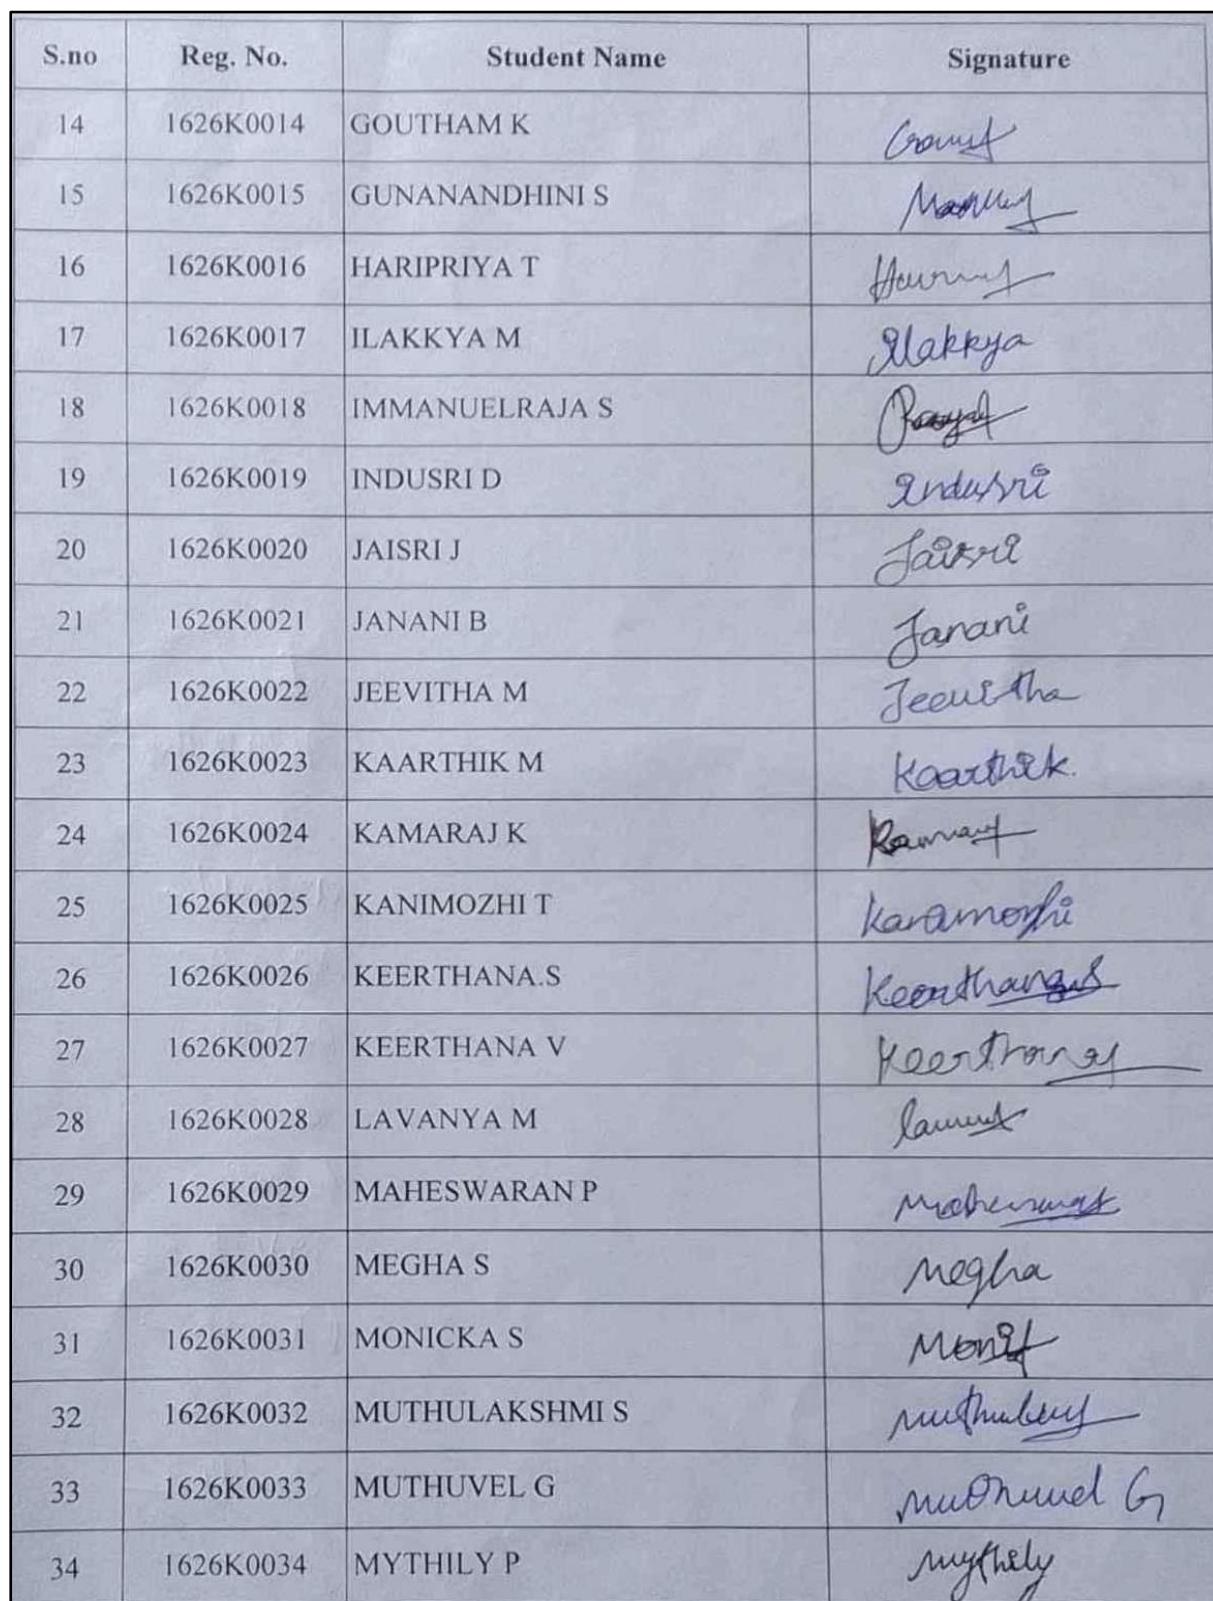 S.no Reg. No. Student Name Signature
14 1626K0014 GOUTHAM K
15 1626K0015 GUNANANDHINI S
16 1626K0016 HARIPRIYA T
17 1626K0017 ILAKKYA M Ilakkya
18 1626K0018 IMMANUELRAJA S
19 1626K0019 INDUSRI D Indusri
20 1626K0020 JAISRI J Jaisri
21 1626K0021 JANANI B Janani
22 1626K0022 JEEVITHA M Jeevitha
23 1626K0023 KAARTHIK M Kaarthik.
24 1626K0024 KAMARAJ K
25 1626K0025 KANIMOZHI T
26 1626K0026 KEERTHANA.S Keerthana.S
27 1626K0027 KEERTHANA V
28 1626K0028 LAVANYA M
29 1626K0029 MAHESWARAN P
30 1626K0030 MEGHA S Megha
31 1626K0031 MONICKA S
32 1626K0032 MUTHULAKSHMI S
33 1626K0033 MUTHUVEL G Muthuvel G
34 1626K0034 MYTHILY P Mythily